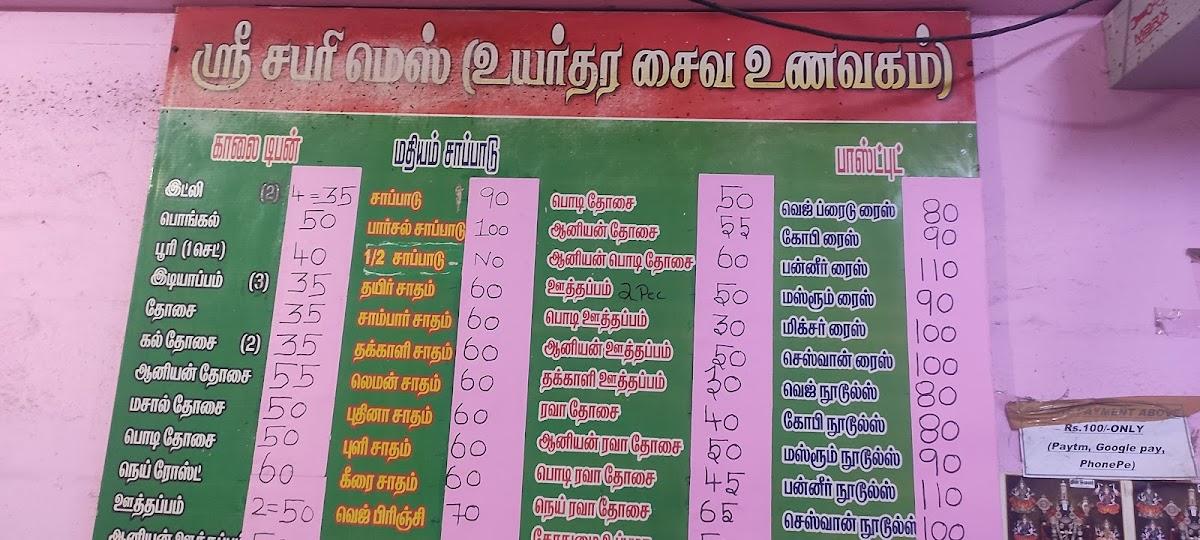 ஸ்ரீ சபரி மெஸ் (உயர்தர சைவ உணவகம்)
காலை டிபன்
இட்லி (2) 4=35
பொங்கல் 50
பூரி (1 செட்) 40
இடியாப்பம் (3) 35
தோசை 35
கல் தோசை (2) 35
ஆனியன் தோசை 55
மசால் தோசை 50
பொடி தோசை 50
நெய் ரோஸ்ட் 60
ஊத்தப்பம் 2=50
மதியம் சாப்பாடு
சாப்பாடு 90
பார்சல் சாப்பாடு 100
1/2 சாப்பாடு - No
தயிர் சாதம் 60
சாம்பார் சாதம் 60
தக்காளி சாதம் 60
லெமன் சாதம் 60
புதினா சாதம் 60
புளி சாதம் 60
கீரை சாதம் 60
வெஜ் பிரிஞ்சி 70
பொடி தோசை 50
ஆனியன் தோசை 55
ஆனியன் பொடி தோசை 60
ஊத்தப்பம் 2 Pec 50
பொடி ஊத்தப்பம் 30
ஆனியன் ஊத்தப்பம் 50
தக்காளி ஊத்தப்பம் 50
ரவா தோசை 40
ஆனியன் ரவா தோசை 50
பொடி ரவா தோசை 45
நெய் ரவா தோசை 65
பாஸ்ட்புட்
வெஜ் ப்ரைடு ரைஸ் 80
கோபி ரைஸ் 90
பன்னீர் ரைஸ் 110
மஸ்ரூம் ரைஸ் 90
மிக்சர் ரைஸ் 100
செஸ்வான் ரைஸ் 100
வெஜ் நூடுல்ஸ் 80
கோபி நூடுல்ஸ் 80
மஸ்ரூம் நூடுல்ஸ் 90
பன்னீர் நூடுல்ஸ் 110
செஸ்வான் நூடுல்ஸ் 100
PAYMENT ABOVE
Rs.100/-ONLY
(Paytm, Google pay,
PhonePe)